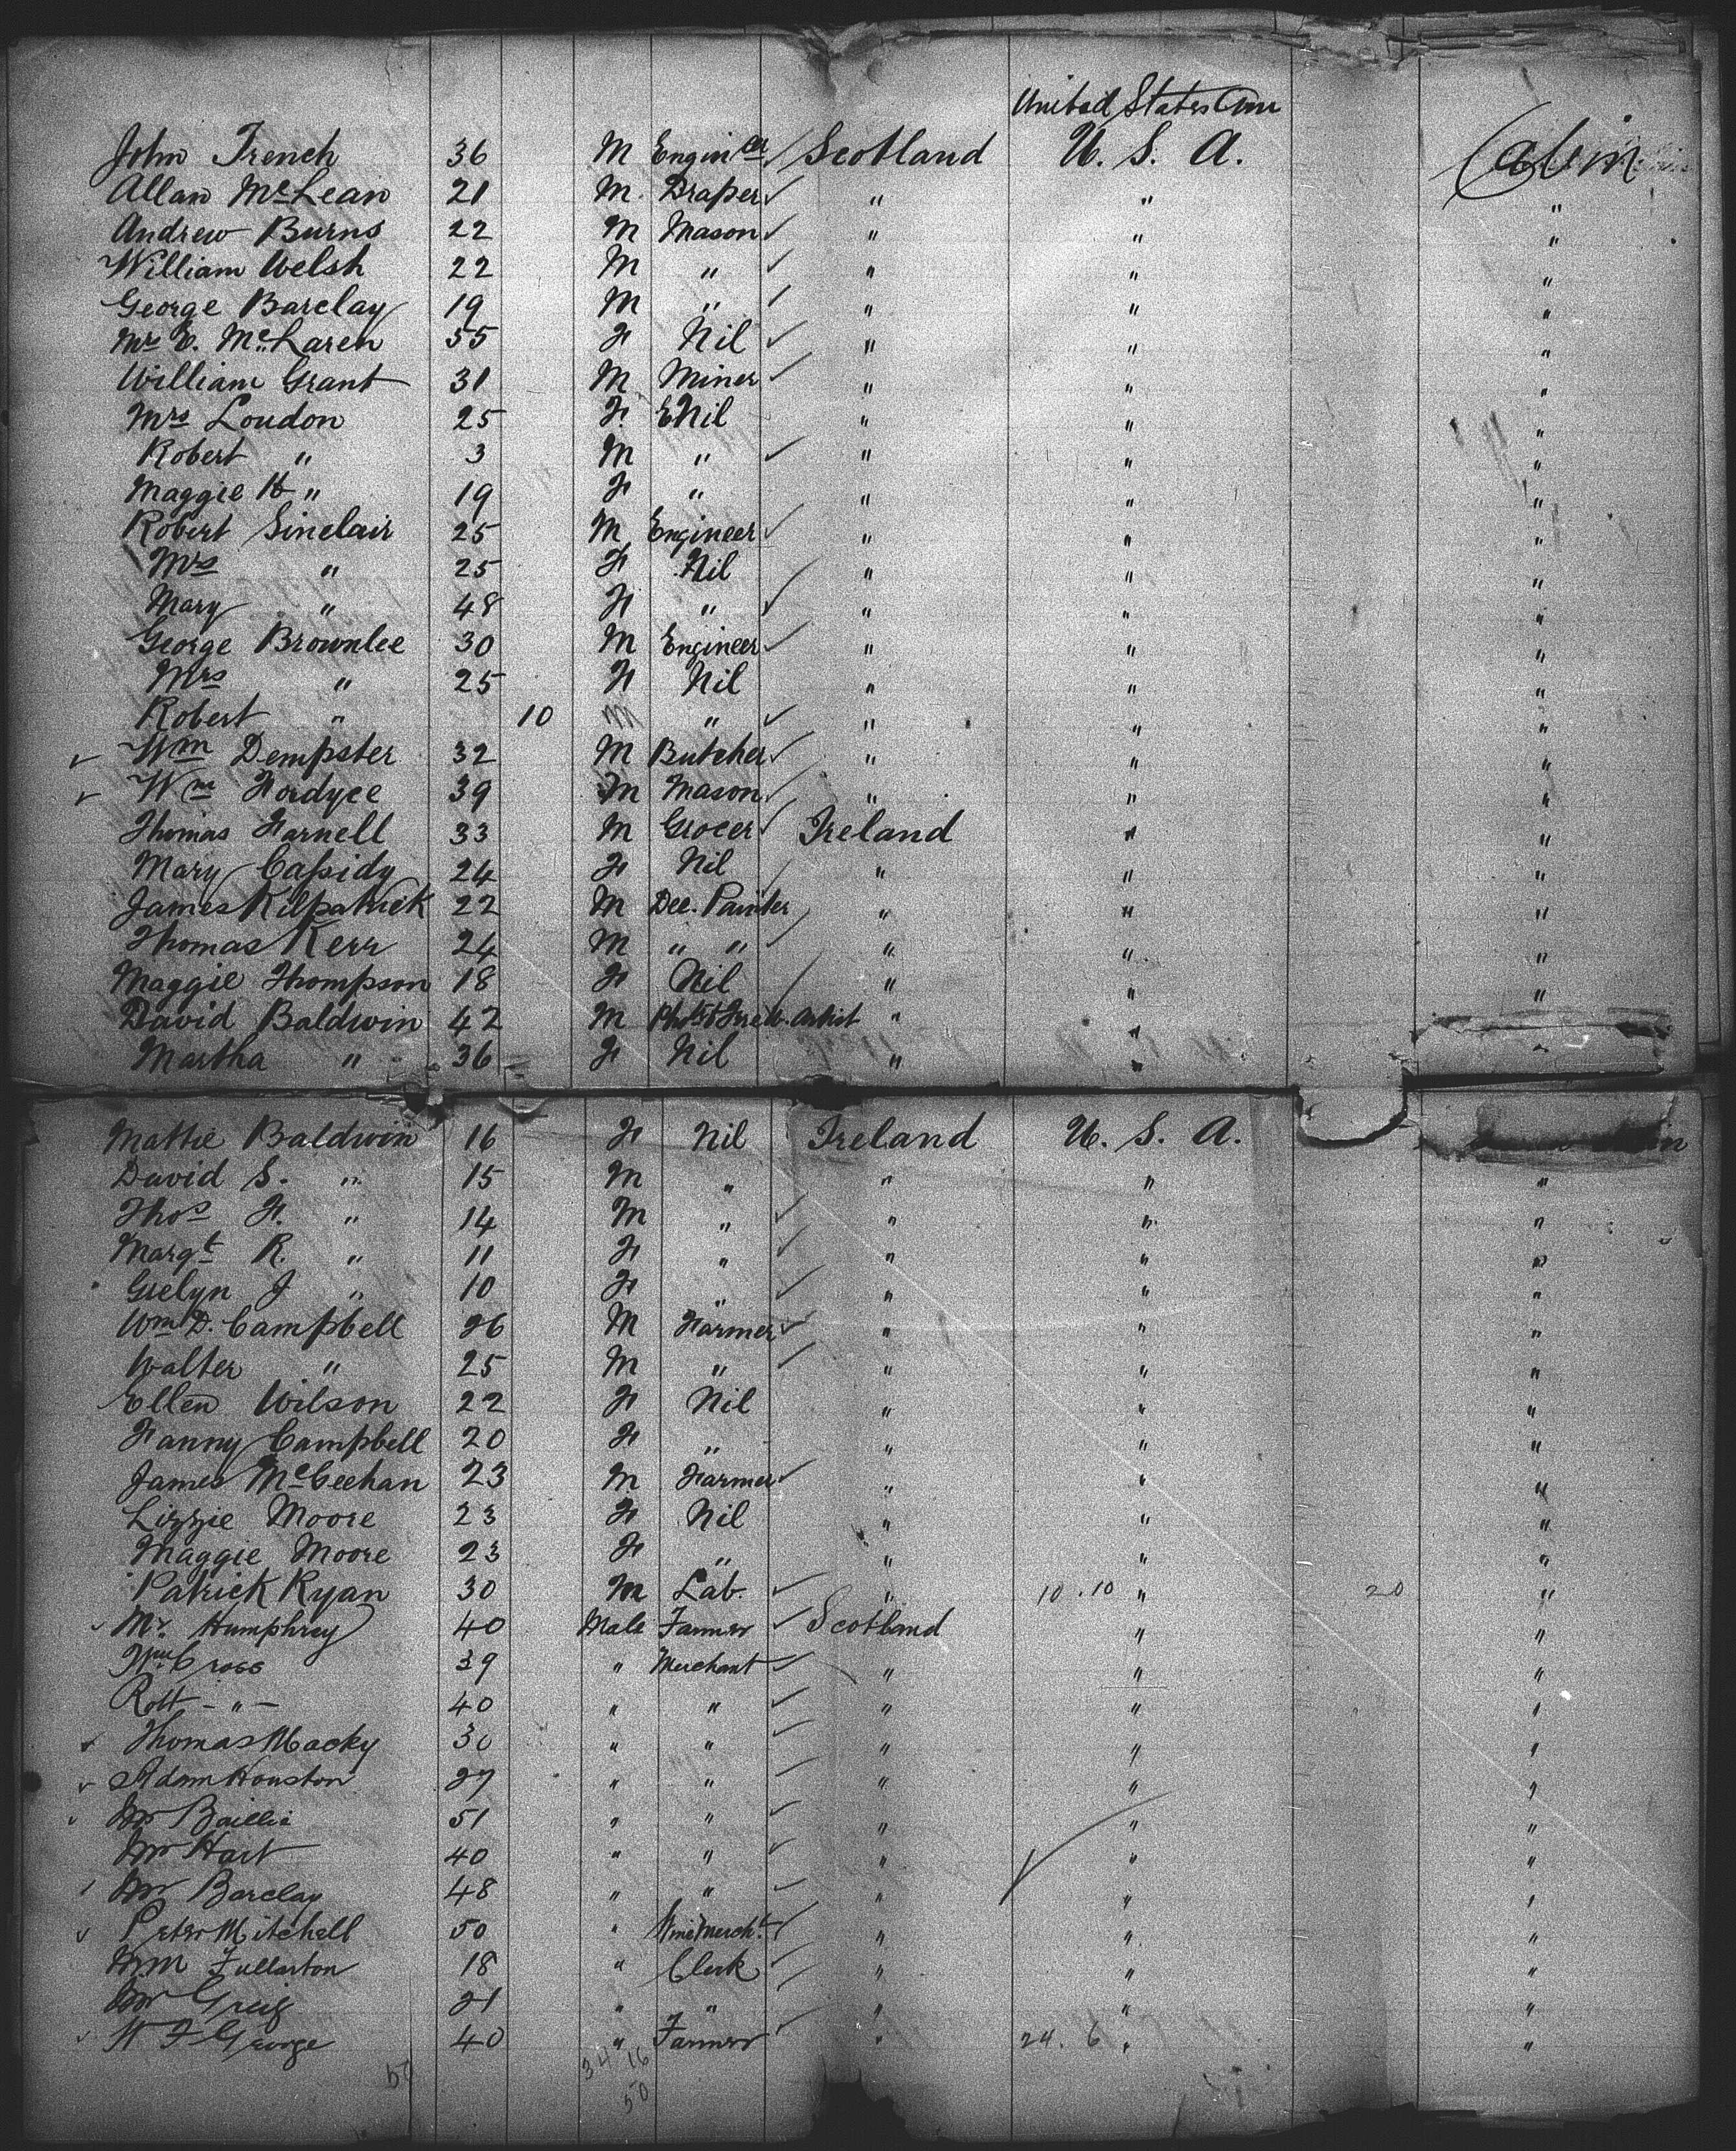 United States Am
John French 36 M Engineer Scotland U. S. A. Cabin
Allan McLean 21 M. Draper " " "
Andrew Burns 22 M Mason " " "
William Welsh 22 M " " " "
George Barclay 19 M " " " "
Mrs E. McLaren 55 F Nil " " "
William Grant 31 M Miner " " "
Mrs Loudon 25 F. Nil " " "
Robert " 3 M " " " "
Maggie H " 19 F " " " "
Robert Sinclair 25 M Engineer " " "
Mrs " 25 F Nil " " "
Mary " 48 F " " " "
George Brownlee 30 M Engineer " " "
Mrs " 25 F Nil " " "
Robert " 10 M " " " "
Wm Dempster 32 M Butcher " " "
Wm Fordyce 39 M Mason " " "
Thomas Farnell 33 M Grocer Ireland " "
Mary Cassidy 24 F Nil " " "
James Kilpatrick 22 M Dec. Painter " " "
Thomas Kerr 24 M " " " " "
Maggie Thompson 18 F Nil " " "
David Baldwin 42 M Artist " "
Martha " 36 F Nil " " "
Mattie Baldwin 16 F Nil Ireland U. S. A.
David S. " 15 M " " " "
Thos F. " 14 M " " " "
Margt R. " 11 F " " " "
Evelyn J " 10 F " " " "
Wm D. Campbell 26 M Farmer " " "
Walter " 25 M " " " "
Ellen Wilson 22 F Nil " " "
Fanny Campbell 20 F " " " "
James McGeehan 23 M Farmer " " "
Lizzie Moore 23 F Nil " " "
Maggie Moore 23 F " " " "
Patrick Ryan 30 M Lab. " 10.10 " 20 "
Mr. Humphrey 40 Male Farmer Scotland " "
Wm Cross 39 " Merchant " " "
Robt - " - 40 " " " " "
Thomas Macky 30 " " " " "
Adam Houston 27 " " " " "
Mr Baillie 51 " " " " "
Mr Hart 40 " " " " "
Mr Barclay 48 " " " " "
Peter Mitchell 50 " Wine Mercht. " " "
Wm Fullarton 18 " Clerk " " "
Mr Greig 21 " " " " "
W F George 40 " Farmer " 24.6 " "
50 34 16
50